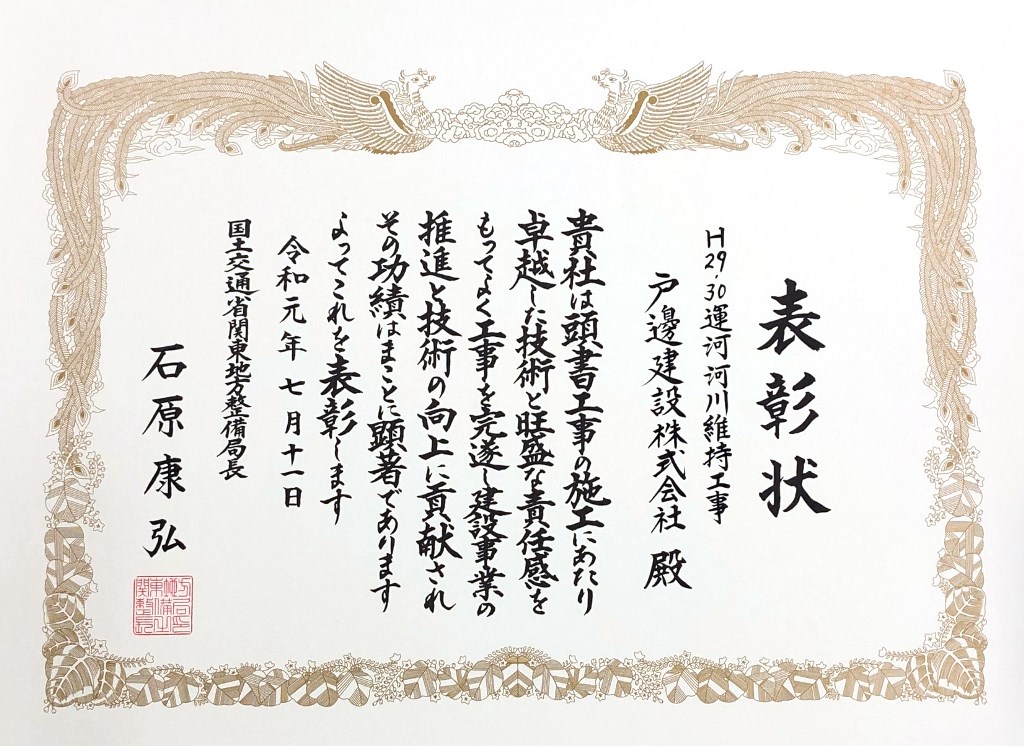 表彰状
H29・30運河河川維持工事
戸邊建設株式会社 殿
貴社は頭書工事の施工にあたり
卓越した技術と旺盛な責任感を
もってよく工事を完遂し建設事業の
推進と技術の向上に貢献され
その功績はまことに顕著であります
よってこれを表彰します
令和元年七月十一日
国土交通省関東地方整備局長
石原康弘